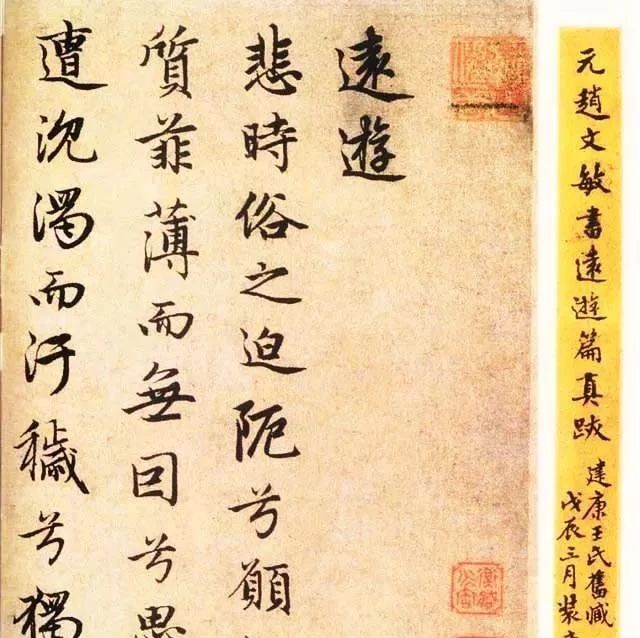 元趙文敏書遠遊篇真
建康王氏舊藏
戊辰三月裝
遠遊
悲時俗之迫阨兮願
質菲薄而無因兮
遭沈濁而汙穢兮獨